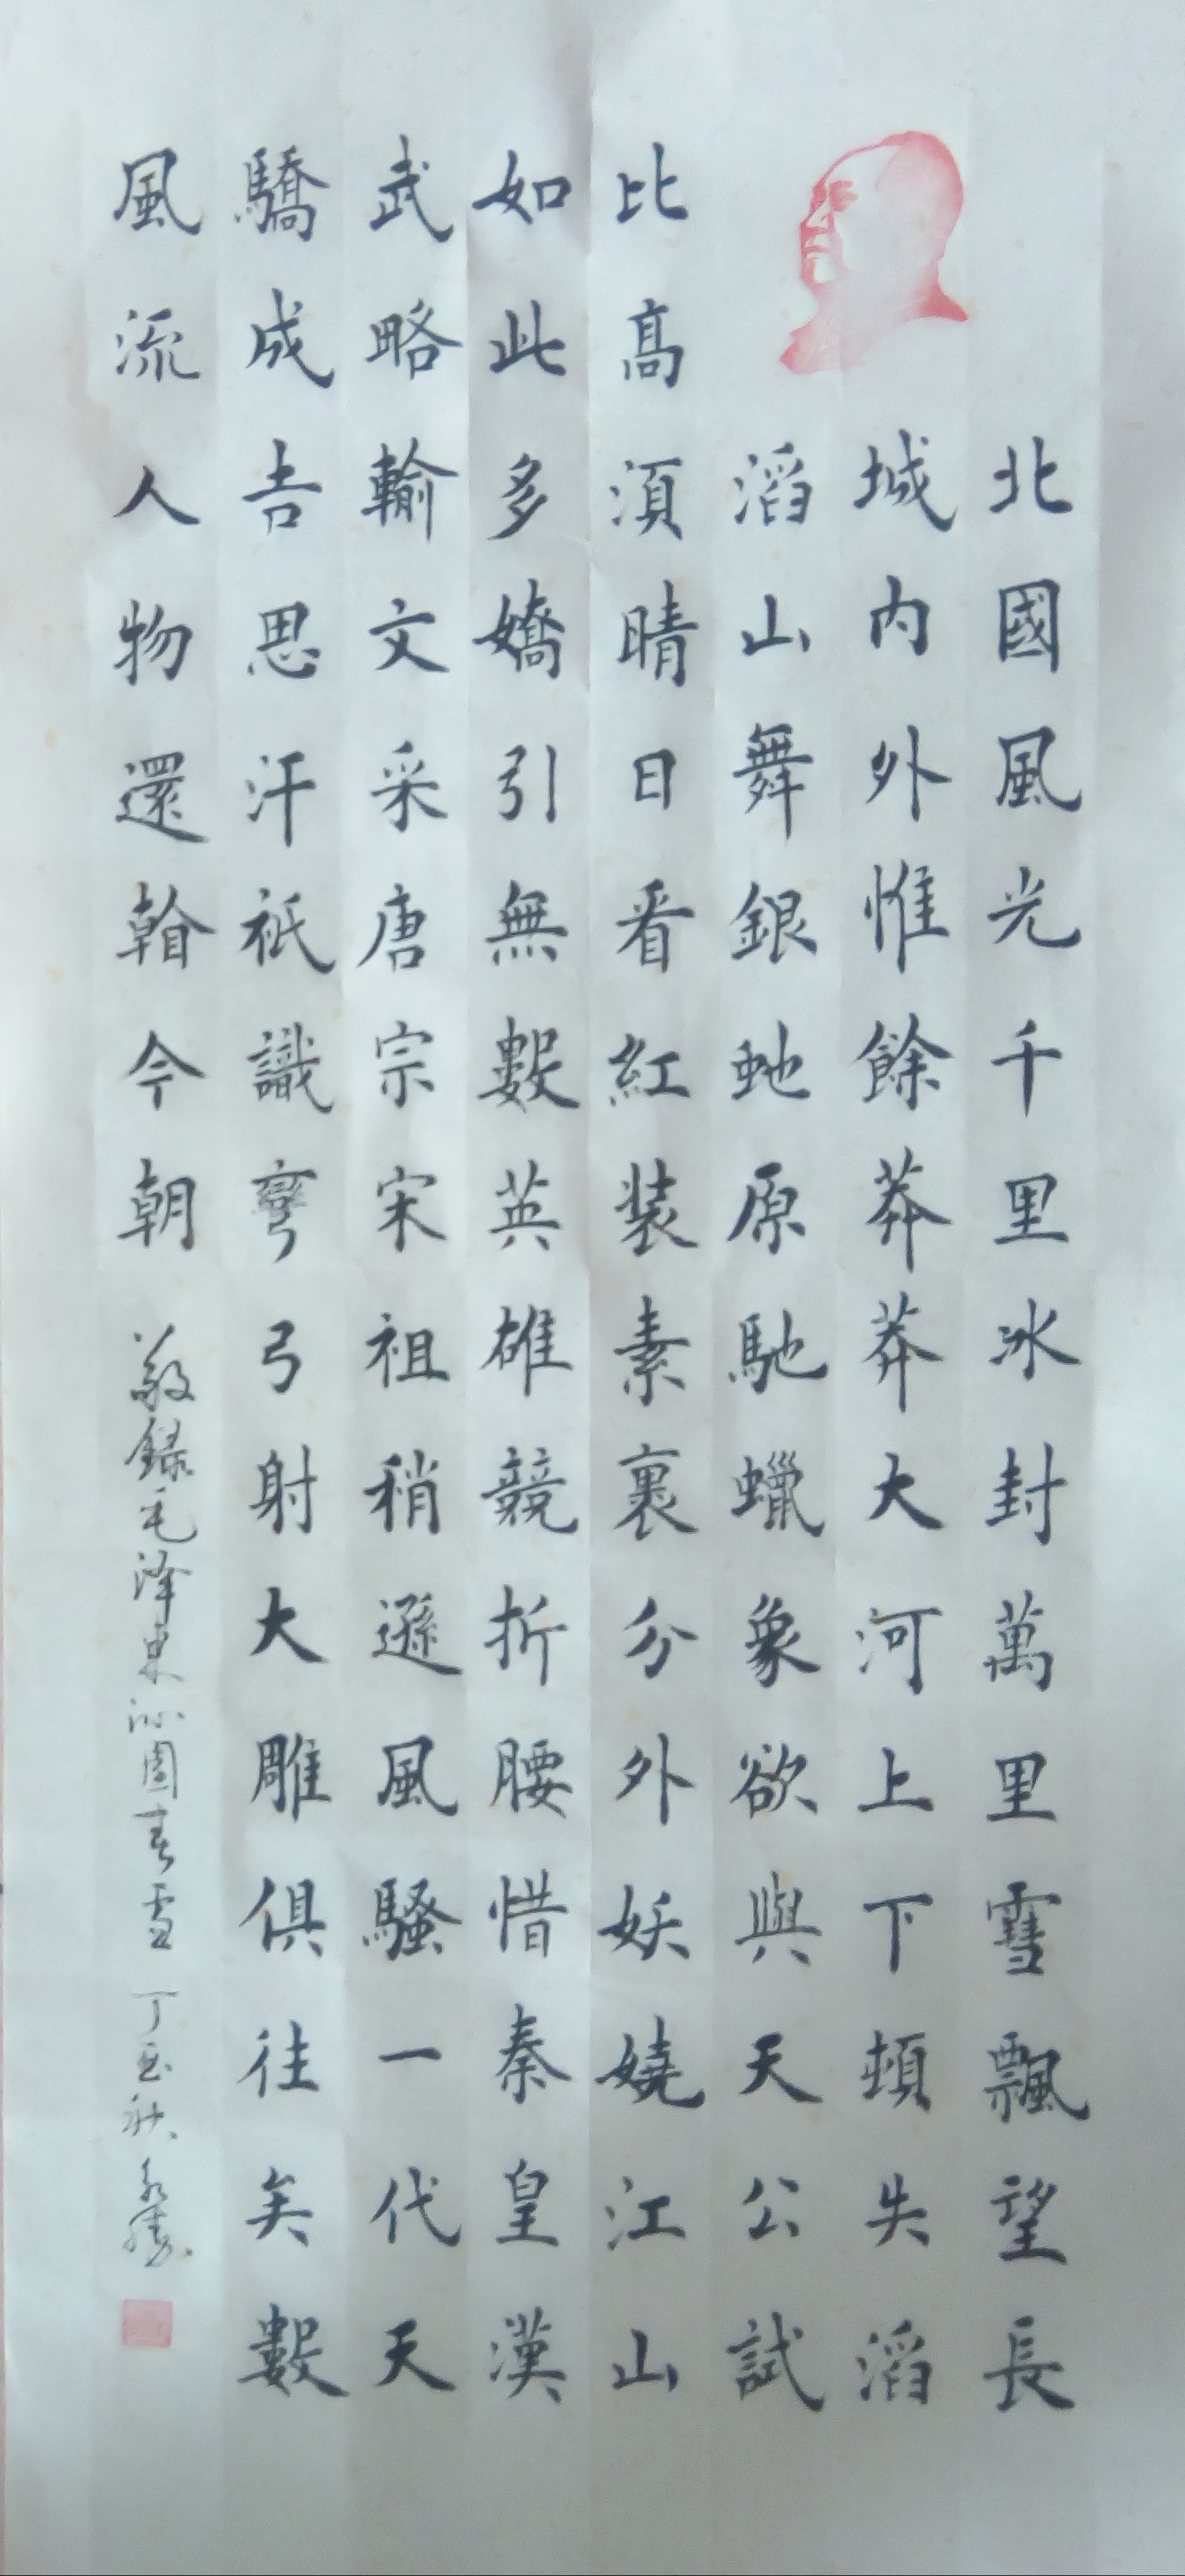 北國風光千里冰封萬里雪飄望長
城内外惟餘莽莽大河上下頓失滔
滔山舞銀虵原馳蠟象欲與天公試
比髙須晴日看紅装素裹分外妖嬈江山
如此多嬌引無數英雄競折腰惜秦皇漢
武略輸文采唐宗宋祖稍遜風騷一代天
驕成吉思汗祇識彎弓射大雕俱往矣數
風流人物還看今朝 敬錄毛泽東沁園春雪 丁酉秋